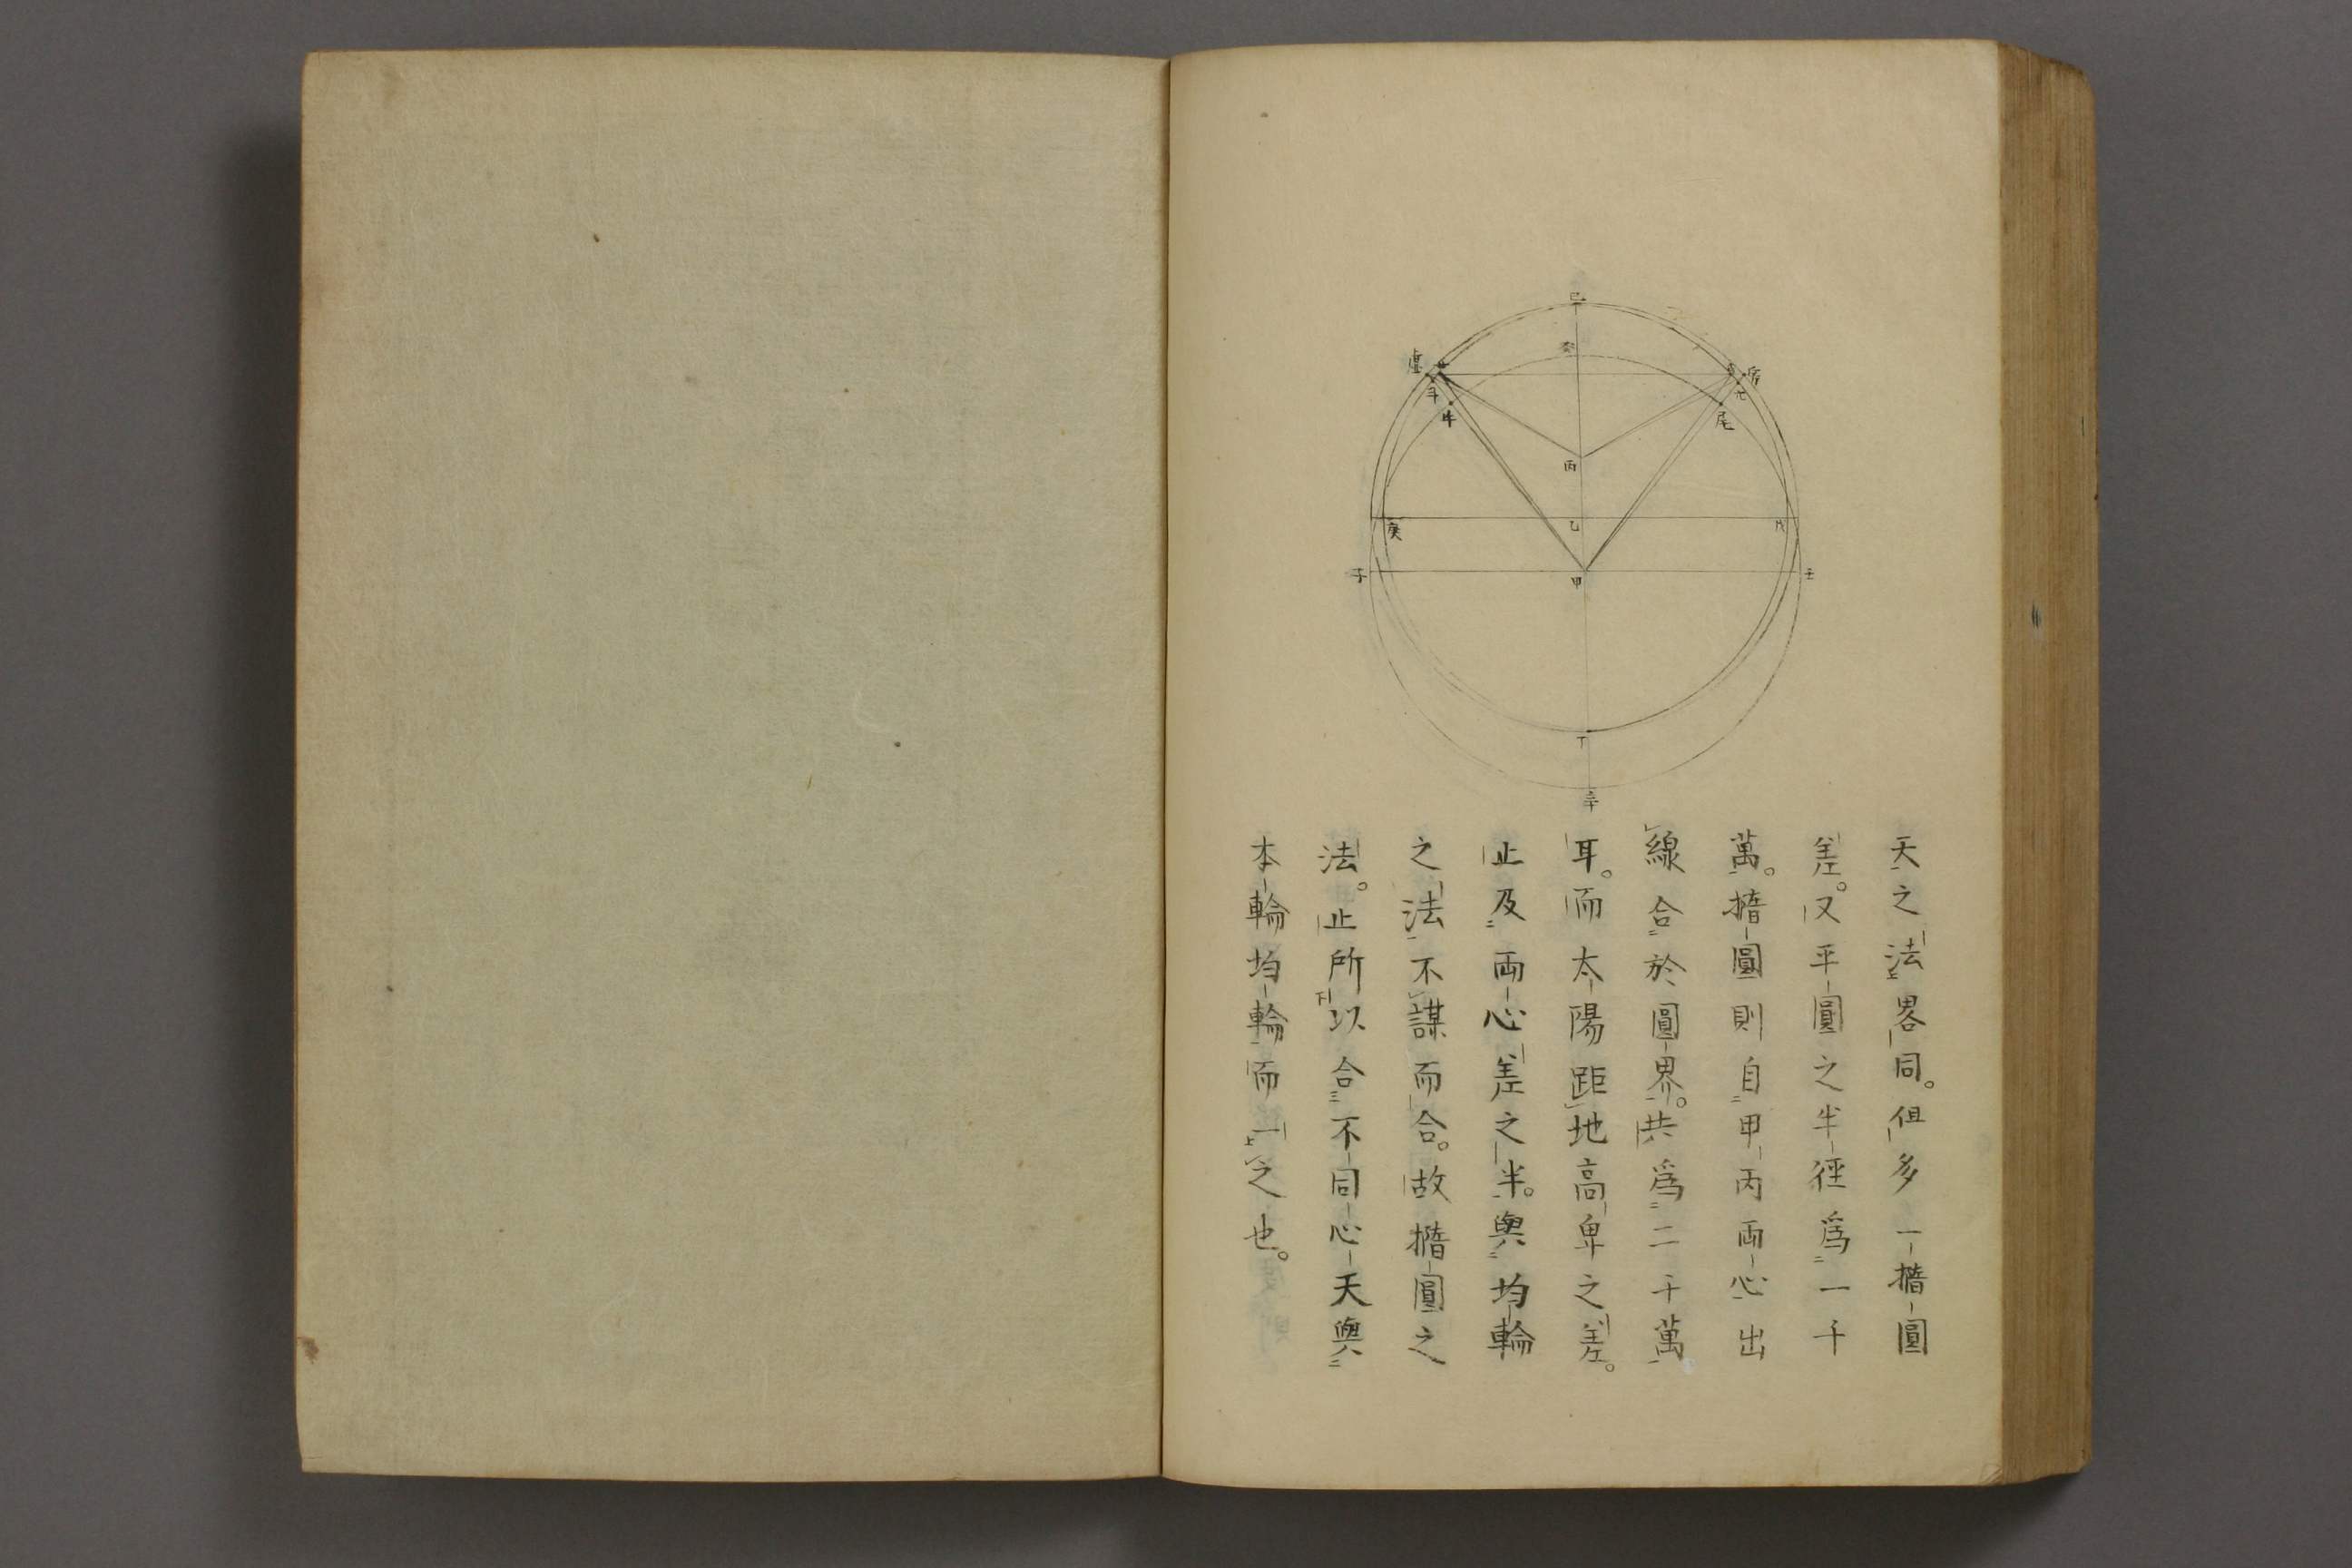 巳
癸
虛
房
亢
斗
牛
尾
丙
庚
乙
戊
子
甲
壬
丁
辛
天之法畧同。但多一橢圓
差。又平圓之半徑爲一千
萬。橢圓則自甲丙両心出
線合於圓界。共爲二千萬
耳。而太陽距地高卑之差。
止及両心差之半。與均輪
之法不謀而合。故橢圓之
法。止所以合不同心天與
本輪均輪而一之也。